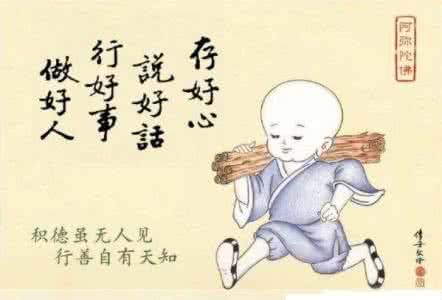 存好心
說好話
行好事
做好人
积德虽无人见
行善自有天知
阿弥陀佛